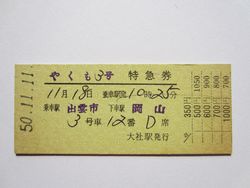 50.11.11.
やくも3号 特急券
11月18日 乗車駅発 10時25分
乗車駅 出雲市 下車駅 岡山
3号車 12番 D席
大社駅発行
350円
500 1050
600 900
700 800